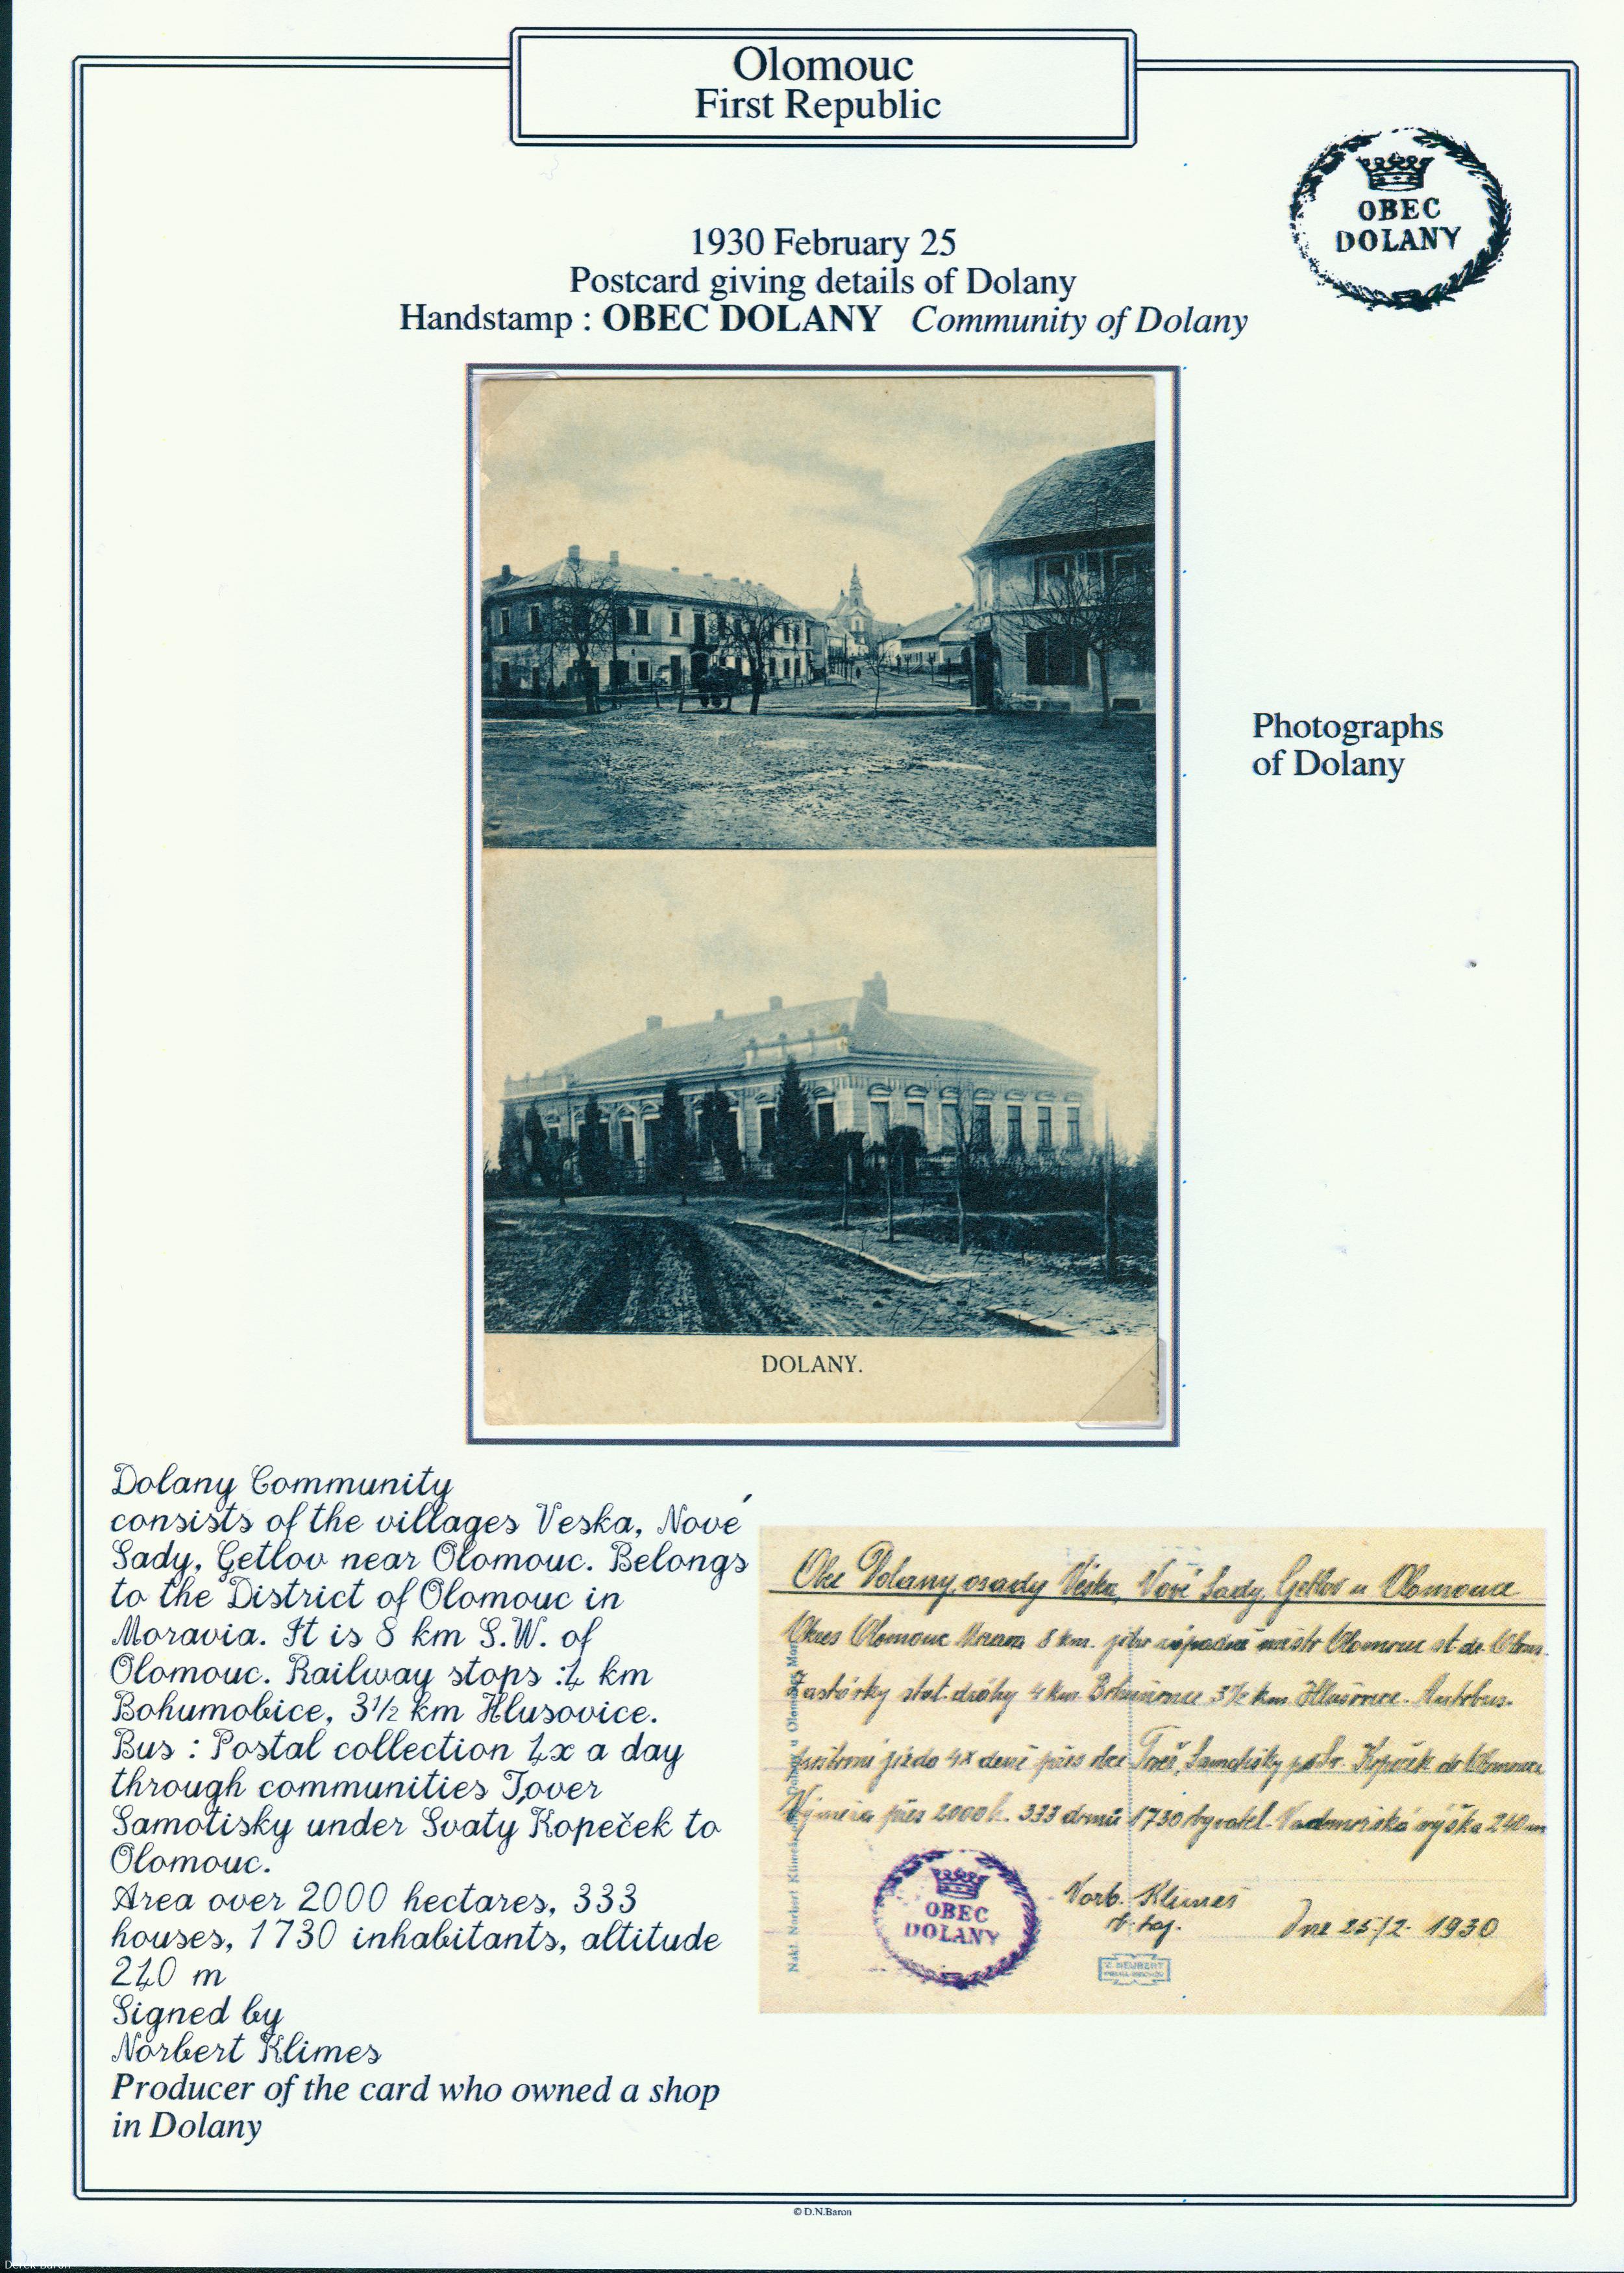 Olomouc
First Republic
OBEC
DOLANY
1930 February 25
Postcard giving details of Dolany
Handstamp : OBEC DOLANY Community of Dolany
Photographs
of Dolany
DOLANY.
Dolany Community
consists of the villages Veska, Nové
Sady, Getlov near Olomouc. Belongs
to the District of Olomouc in
Moravia. It is 8 km S.W. of
Olomouc. Railway stops :4 km
Bohumobice, 3½ km Hlusovice.
Bus : Postal collection 4x a day
through communities Tover
Samotisky under Svaty Kopeček to
Olomouc.
Area over 2000 hectares, 333
houses, 1730 inhabitants, altitude
240 m
Signed by
Norbert Klimes
Producer of the card who owned a shop
in Dolany
Dolany osady Veska, Nové Sady, Getlov u Olomouce
Okres Olomouc Morava 8 km. jiho západně Olomouc
Zastávky stat. dráhy 4 km. 3½ km. Hlušovice. Autobus.
jízda 4x deně přes obec Samotišky Kopeček do Olomouce
Výměra přes 2000 h. 333 domů 1730 obyvatel. Nadmořská výška 240 m
OBEC
DOLANY
Norb. Klimeš
Dne 25/2 1930
V. NEUBERT
Nakl. Norbert Klimeš, Dolany u Olomouce, Mor.
© D.N.Baron
Derek Baron